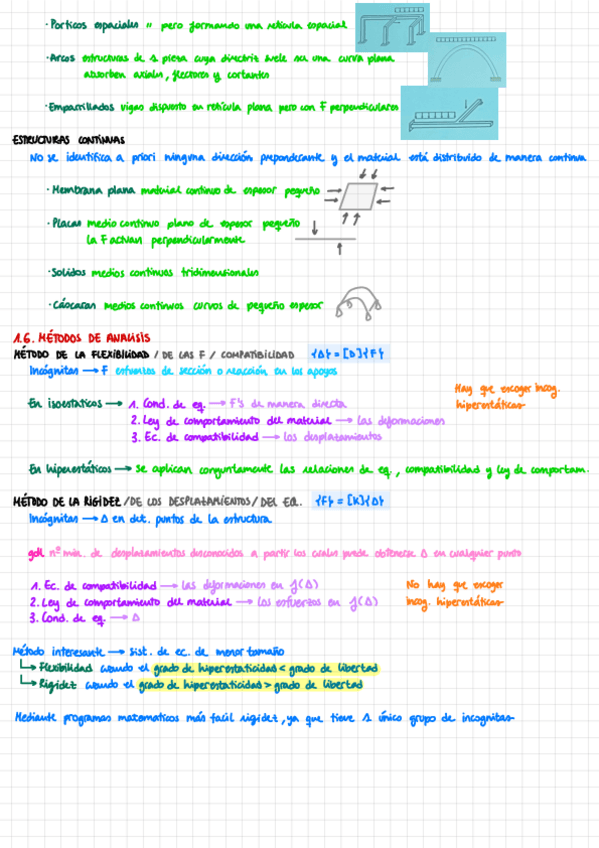 · Pórticos espaciales " pero formando una retícula espacial
· Arcos estructuras de 1 pieza cuya directriz suele ser una curva plana
absorben axiales, flectores y cortantes
· Emparrillados vigas dispuesto en retícula plana pero con F perpendiculares
ESTRUCTURAS CONTINUAS
No se identifica a priori ninguna dirección preponderante y el material está distribuido de manera continua
· Membrana plana material continuo de espesor pequeño
· Placas medio continuo plano de espesor pequeño
la F actúan perpendicularmente
· Solidos medios continuos tridimensionales
· Cáscaran medios continuos curvos de pequeño espesor
1.6. MÉTODOS DE ANALISIS
MÉTODO DE LA FLEXIBILIDAD / DE LAS F / COMPATIBILIDAD {Δ} = [D]{F}
Incógnitas → F esfuerzos de sección o reacción en los apoyos
Hay que escoger incog.
hiperestáticas
En isoestáticos → 1. Cond. de eq. → F's de manera directa
2. Ley de comportamiento del material → las deformaciones
3. Ec. de compatibilidad → los desplazamientos
En hiperestáticos → se aplican conjuntamente las relaciones de eq., compatibilidad y ley de comportam.
MÉTODO DE LA RIGIDEZ / DE LOS DESPLAZAMIENTOS / DEL EQ. {F} = [K]{Δ}
Incógnitas → Δ en det. puntos de la estructura
gdl nº min. de desplazamientos desconocidos a partir los cuales puede obtenerse Δ en cualquier punto
1. Ec. de compatibilidad → las deformaciones en f(Δ)
2. Ley de comportamiento del material → los esfuerzos en f(Δ)
3. Cond. de eq. → Δ
No hay que escoger
incog. hiperestáticas
Método interesante → Sist. de ec. de menor tamaño
↳ Flexibilidad cuando el grado de hiperestaticidas < grado de libertad
↳ Rigidez cuando el grado de hiperestaticidas > grado de libertad
Mediante programas matematicos más facil rigidez, ya que tiene 1 único grupo de incognitas